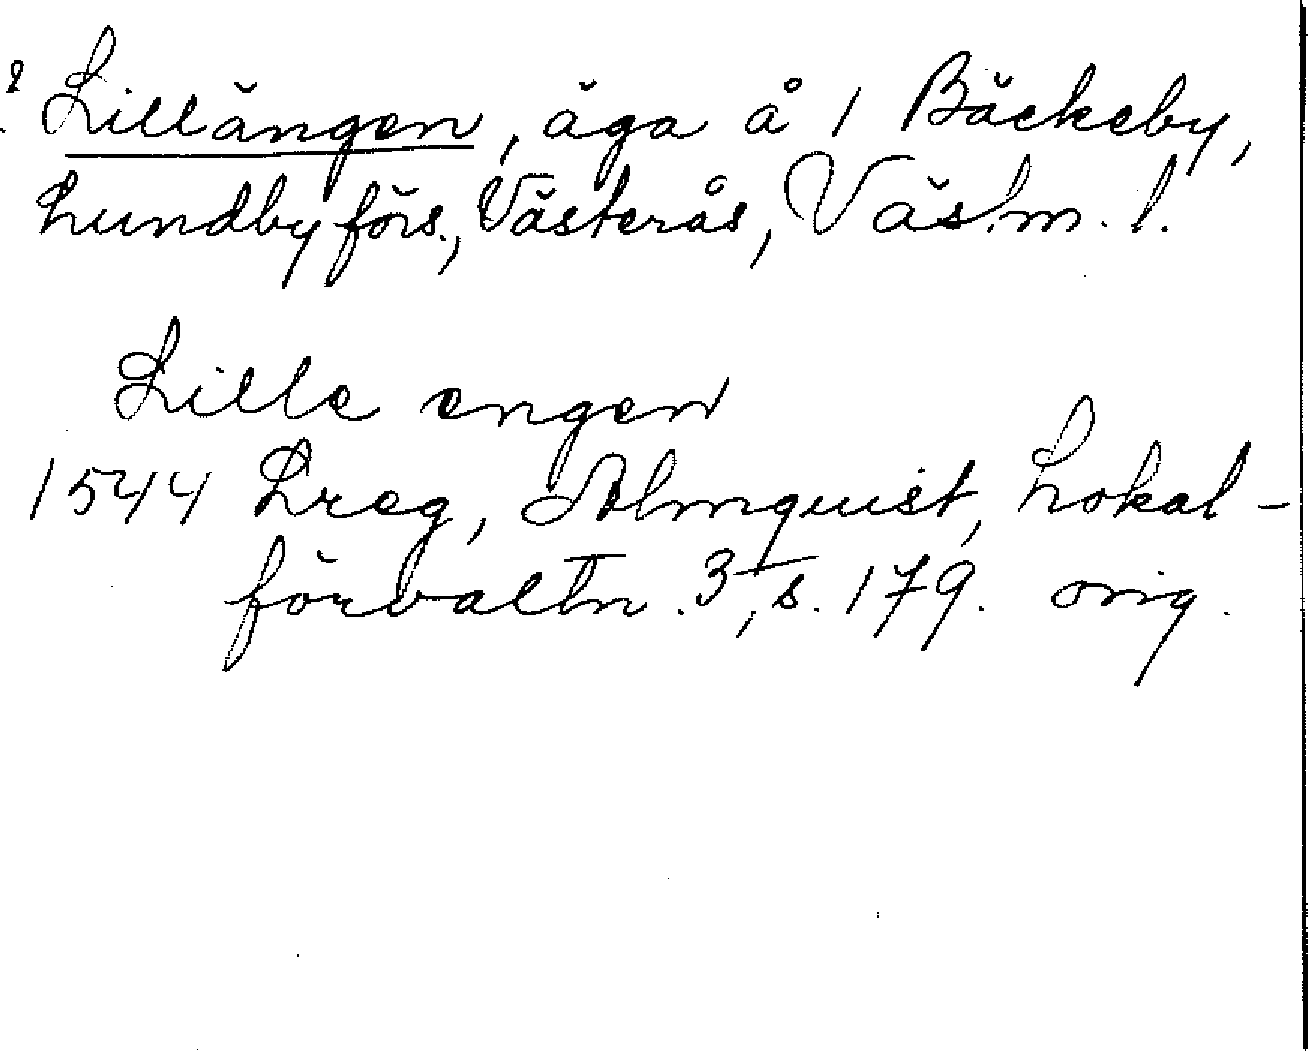 ? Lillängen, äga å 1 Bäckeby,
Lundby förs., Västerås, Väsm. l.
Lille engen
1544 Lreg, Almquist, Lokal-
förvaltn. 3, s. 179. orig.